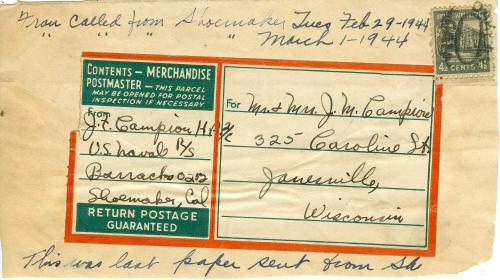 Fran called from Shoemaker Tues Feb 29-1944
" " " " March 1-1944
4½ CENTS 4½
CONTENTS - MERCHANDISE
POSTMASTER - THIS PARCEL
MAY BE OPENED FOR POSTAL
INSPECTION IF NECESSARY
From
J.F. Campion HA 2/c
U.S. Naval B/S
Barracks 0212
Shoemaker, Cal
RETURN POSTAGE
GUARANTEED
For Mr. & Mrs. J. M. Campion
325 Caroline St
Janesville,
Wisconsin
This was last paper sent from Sh